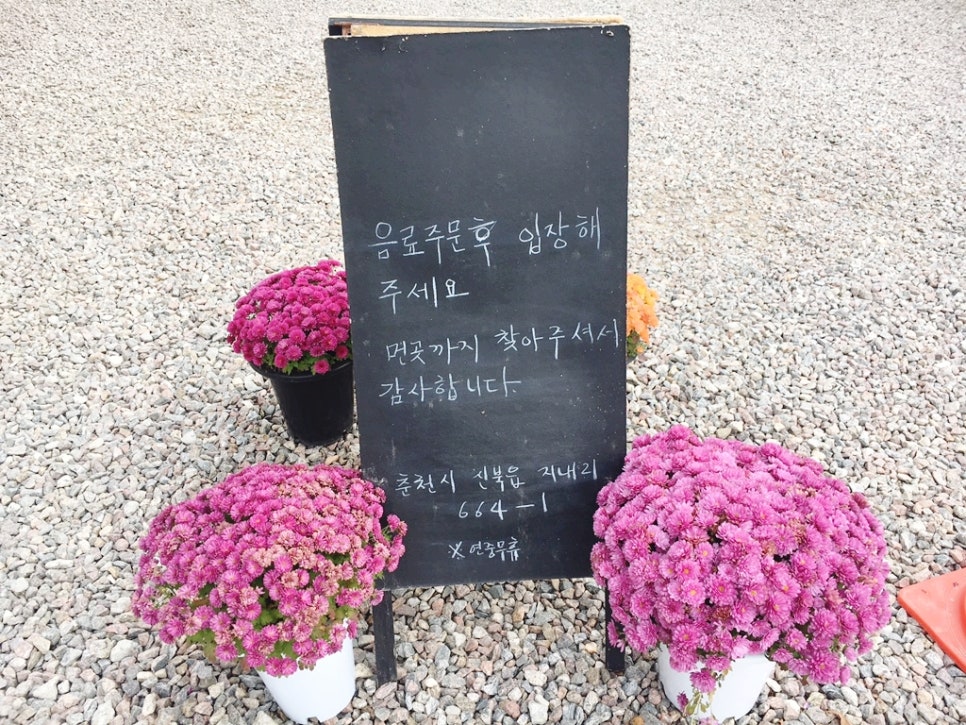 음료주문후 입장해
주세요
먼곳까지 찾아주셔서
감사합니다.
춘천시 신북읍 지내리
664-1
※연중무휴